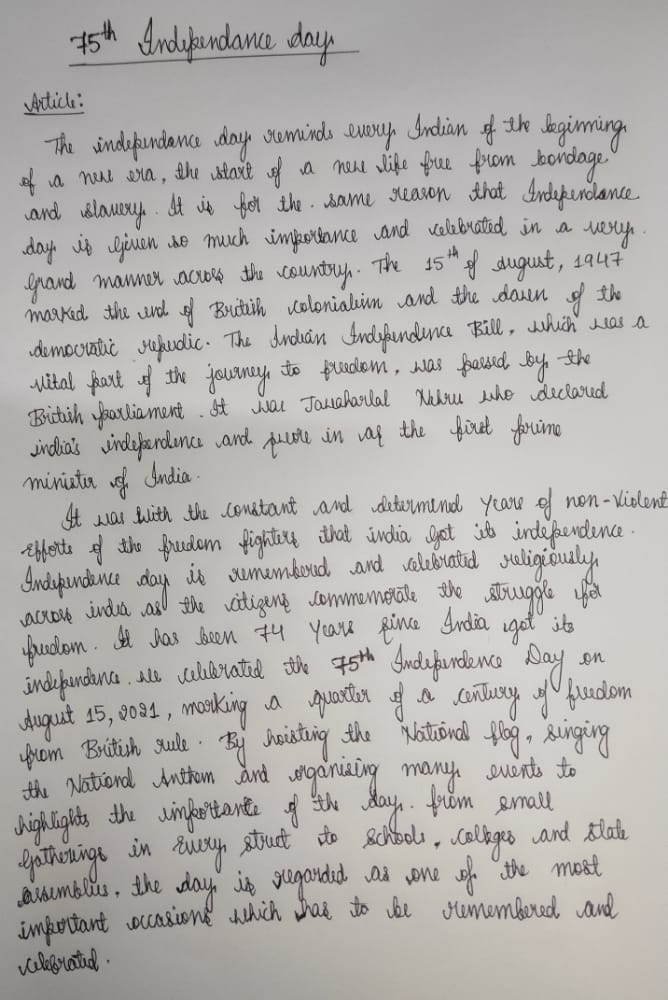 75th Independance day
Article:
The independance day reminds every Indian of the beginning
of a new era, the start of a new life free from bondage
and slavery. It is for the same reason that Independance
day is given so much importance and celebrated in a very
grand manner across the country. The 15th of august, 1947
marked the end of British colonialism and the dawn of the
democratic repudic. The Indian Independence Bill, which was a
vital part of the journey to freedom, was passed by the
British parliament. It was Jawaharlal Nehru who declared
india's independence and swore in as the first prime
minister of India.
It was with the constant and determend years of non-violent
efforts of the freedom fighters that india got its independence.
Independence day is remembered and celebrated religiously
across india as the citizens commemorate the struggle for
freedom. It has been 74 years since India got its
independence. we celebrated the 75th Independence Day on
August 15, 2021, marking a quarter of a century of freedom
from British rule. By hoisting the National flag, singing
the National Anthem and organising many events to
highlights the importante of the day. from small
gatherings in every struct to schools, colleges and state
assemblies, the day is regarded as one of the most
important occasions which has to be remembered and
celebrated.